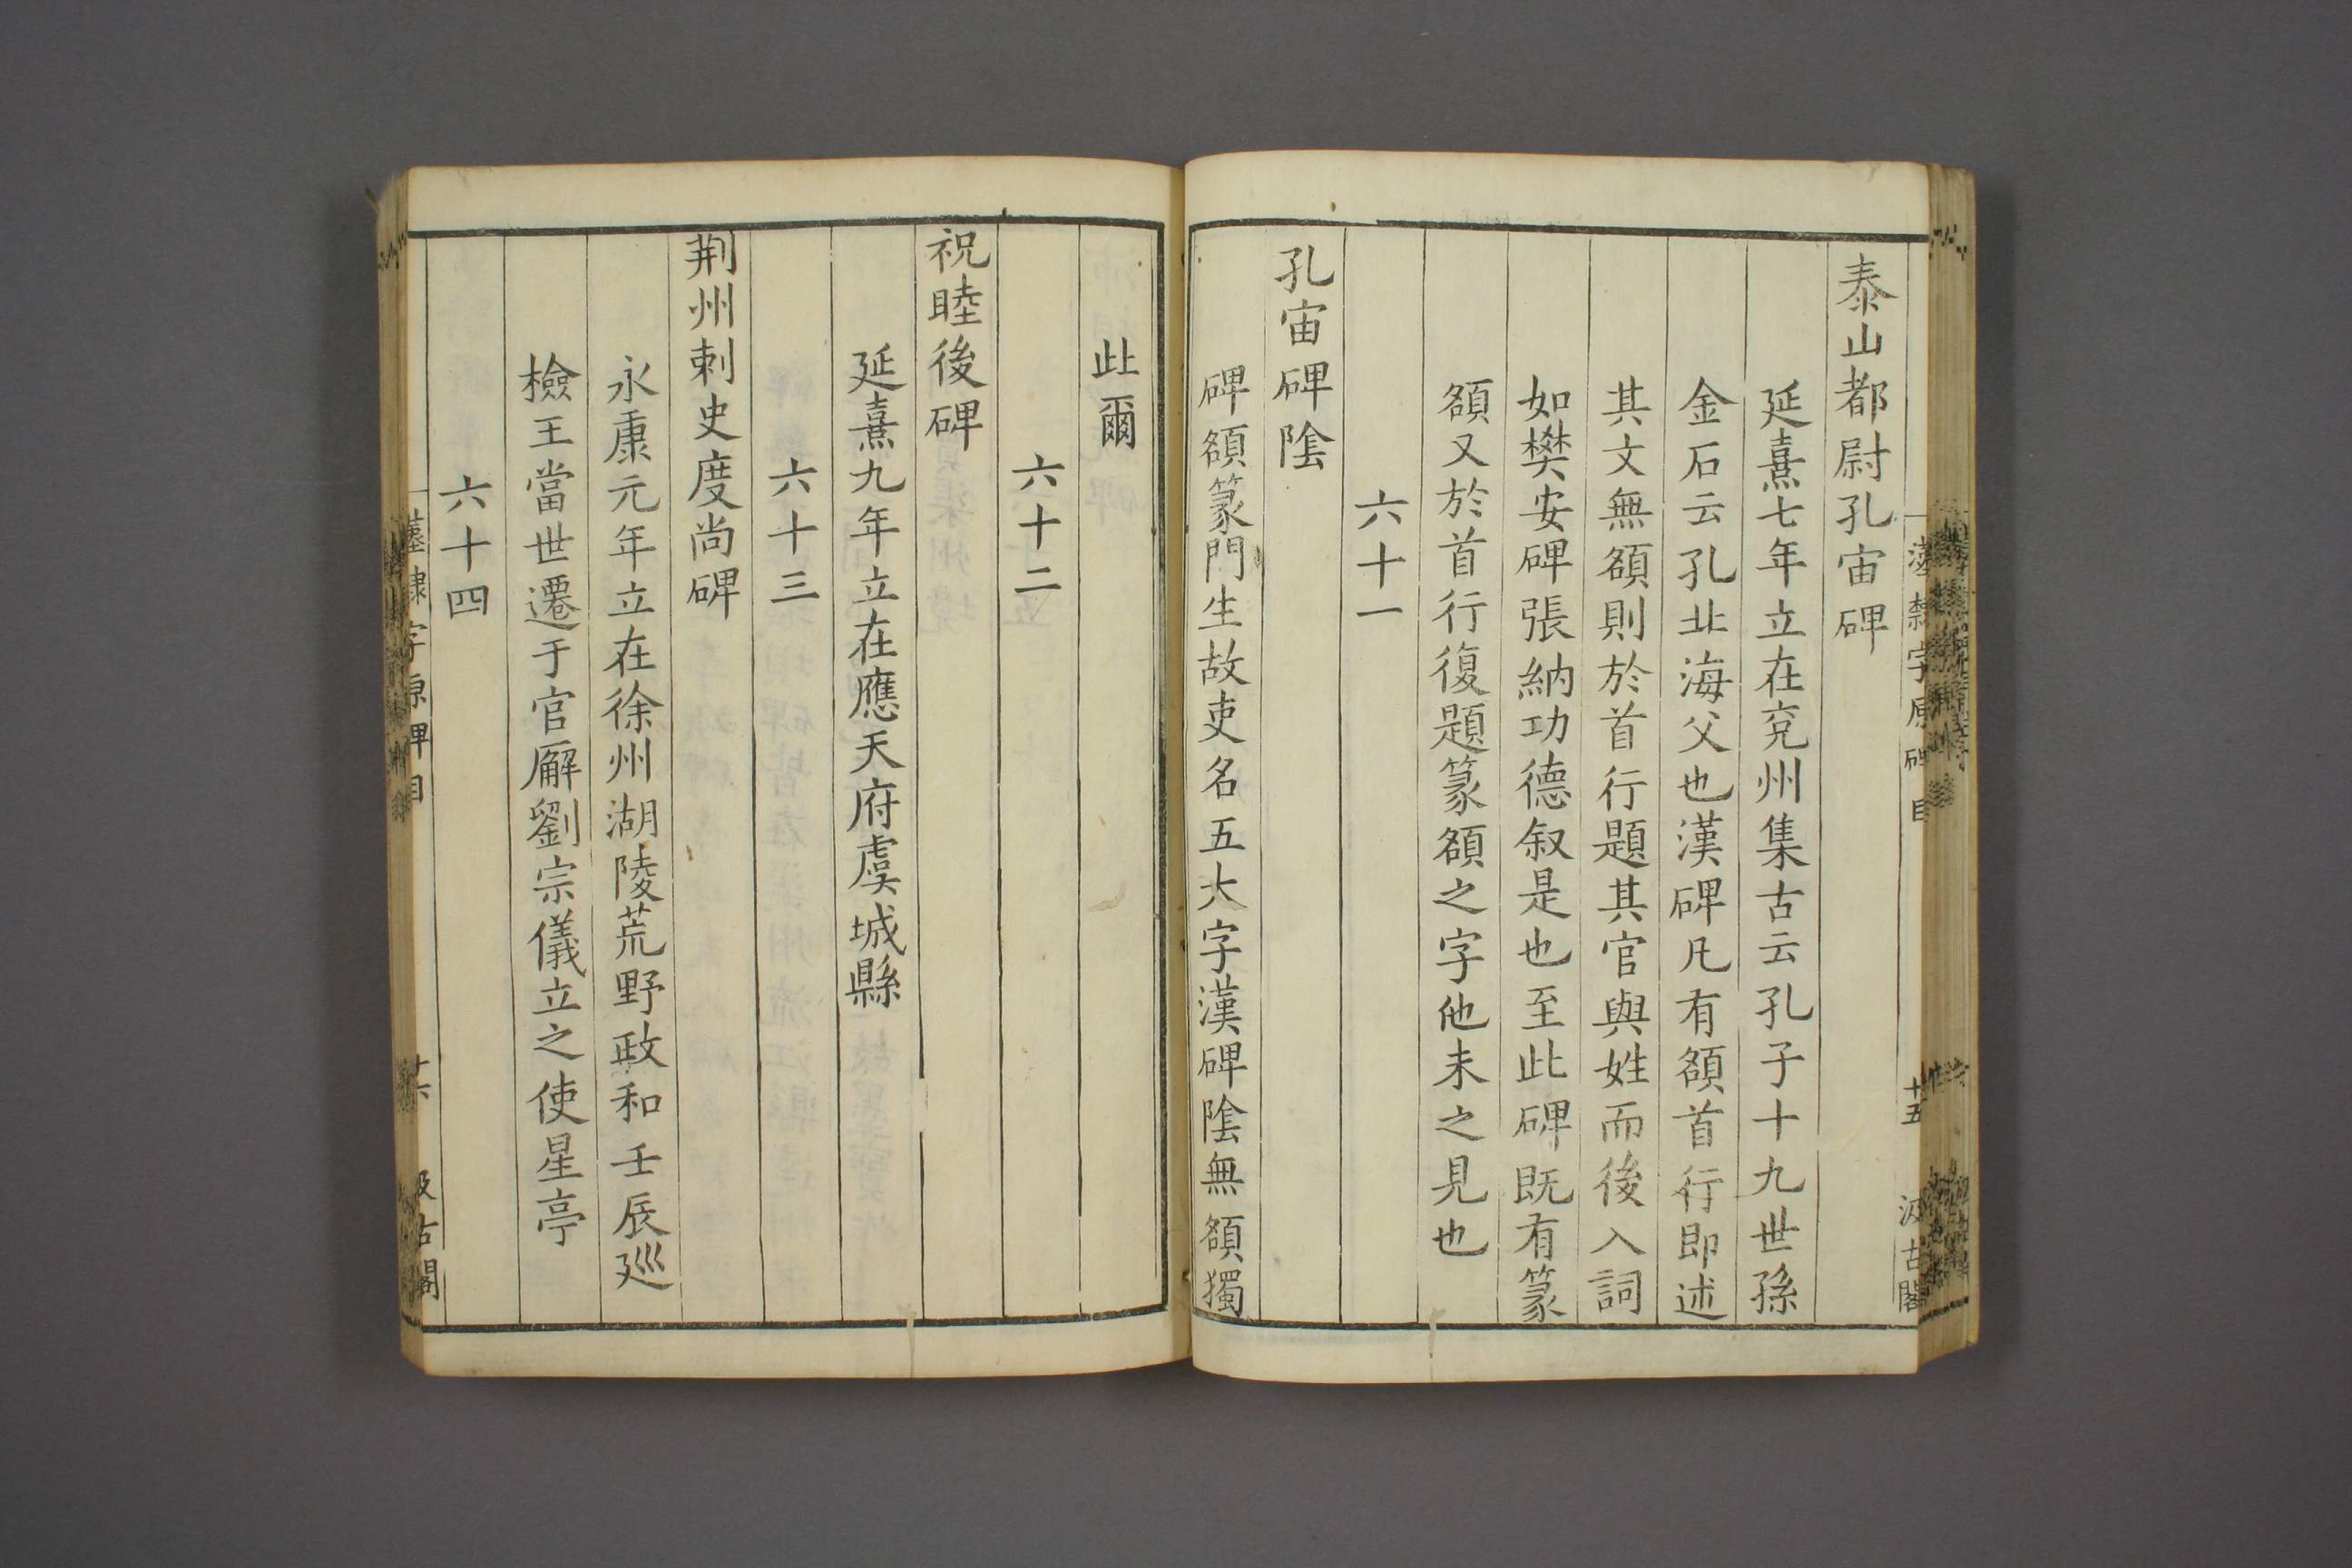 泰山都尉孔宙碑
延熹七年立在兖州集古云孔子十九世孫
金石云孔北海父也漢碑凡有額首行即述
其文無額則於首行題其官與姓而後入詞
如樊安碑張納功德叙是也至此碑既有篆
額又於首行復題篆額之字他未之見也
六十一
孔宙碑陰
碑額篆門生故吏名五大字漢碑陰無額獨
此爾
六十二
祝睦後碑
延熹九年立在應天府虞城縣
六十三
荆州刺史度尚碑
永康元年立在徐州湖陵荒野政和壬辰廵
檢王當世遷于官廨劉宗儀立之使星亭
六十四
漢隸字原碑目
十五
汲古閣
漢隸字原碑目
十六
汲古閣